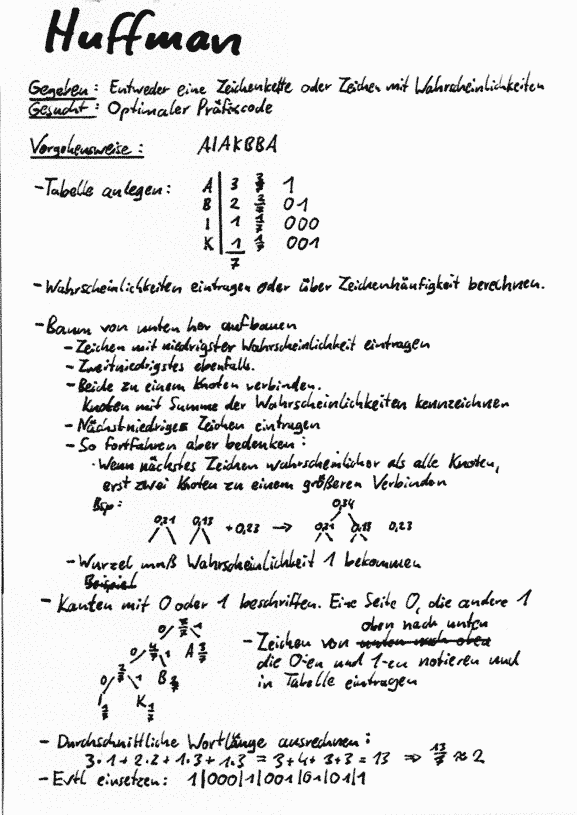 Huffman
Gegeben: Entweder eine Zeichenkette oder Zeichen mit Wahrscheinlichkeiten
Gesucht: Optimaler Präfixcode
Vorgehensweise: AIAKBBA
- Tabelle anlegen:
A 3 3/7 1
B 2 2/7 01
I 1 1/7 000
K 1 1/7 001
7
- Wahrscheinlichkeiten eintragen oder über Zeichenhäufigkeit berechnen.
- Baum von unten her aufbauen
- Zeichen mit niedrigster Wahrscheinlichkeit eintragen
- Zweitniedrigstes ebenfalls.
- Beide zu einem Knoten verbinden.
Knoten mit Summe der Wahrscheinlichkeiten kennzeichnen
- Nächstniedriges Zeichen eintragen
- So fortfahren aber bedenken:
· Wenn nächstes Zeichen wahrscheinlicher als alle Knoten,
erst zwei Knoten zu einem größeren Verbinden
Bsp:
0,34
0,21 0,13 + 0,23 → 0,21 0,13 0,23
- Wurzel muß Wahrscheinlichkeit 1 bekommen
Beispiel
- Kanten mit 0 oder 1 beschriften. Eine Seite 0, die andere 1
oben nach unten
- Zeichen von unten nach oben
die 0-en und 1-en notieren und
in Tabelle eintragen
0 7/7 1
0 4/7 1 A 3/7
0 2/7 1 B 2/7
I 1/7 K 1/7
- Durchschnittliche Wortlänge ausrechnen:
3·1 + 2·2 + 1·3 + 1·3 = 3+4+3+3 = 13 ⇒ 13/7 ≈ 2
- Evtl einsetzen: 1|000|1|001|01|01|1